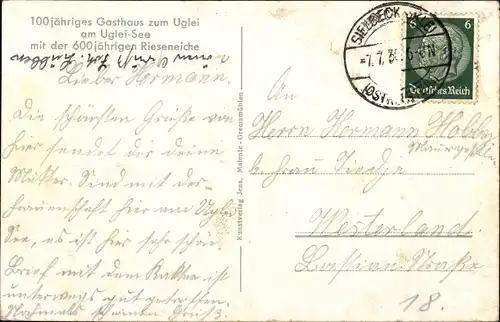 100jähriges Gasthaus zum Uglei
am Uglei-See
mit der 600jährigen Rieseneiche
Lieber Hermann.
Die schönsten Grüße von
hier sendet dir deine
Mutter. Sind mit der
Frauenschaft hier am Uglei
See, es ist hier sehr schön
Brief mit dem Karten ist
unterwegs gut getroffen.
Nochmals schönen Gruß
Kunstverlag Jens, Malente-Gremsmühlen
SIELBECK-UKLEI
7.7.3 6-N
(OSTHOLST
6
Deutsches Reich
An
Herrn Hermann Hobby
b. Frau Tiedje
Westerland
Bastian-Straße
18.